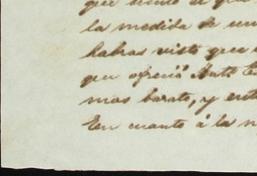 que
la medida de un
habras visto que
que ofrecia Ante
mas barato, y ent
En cuanto á la n